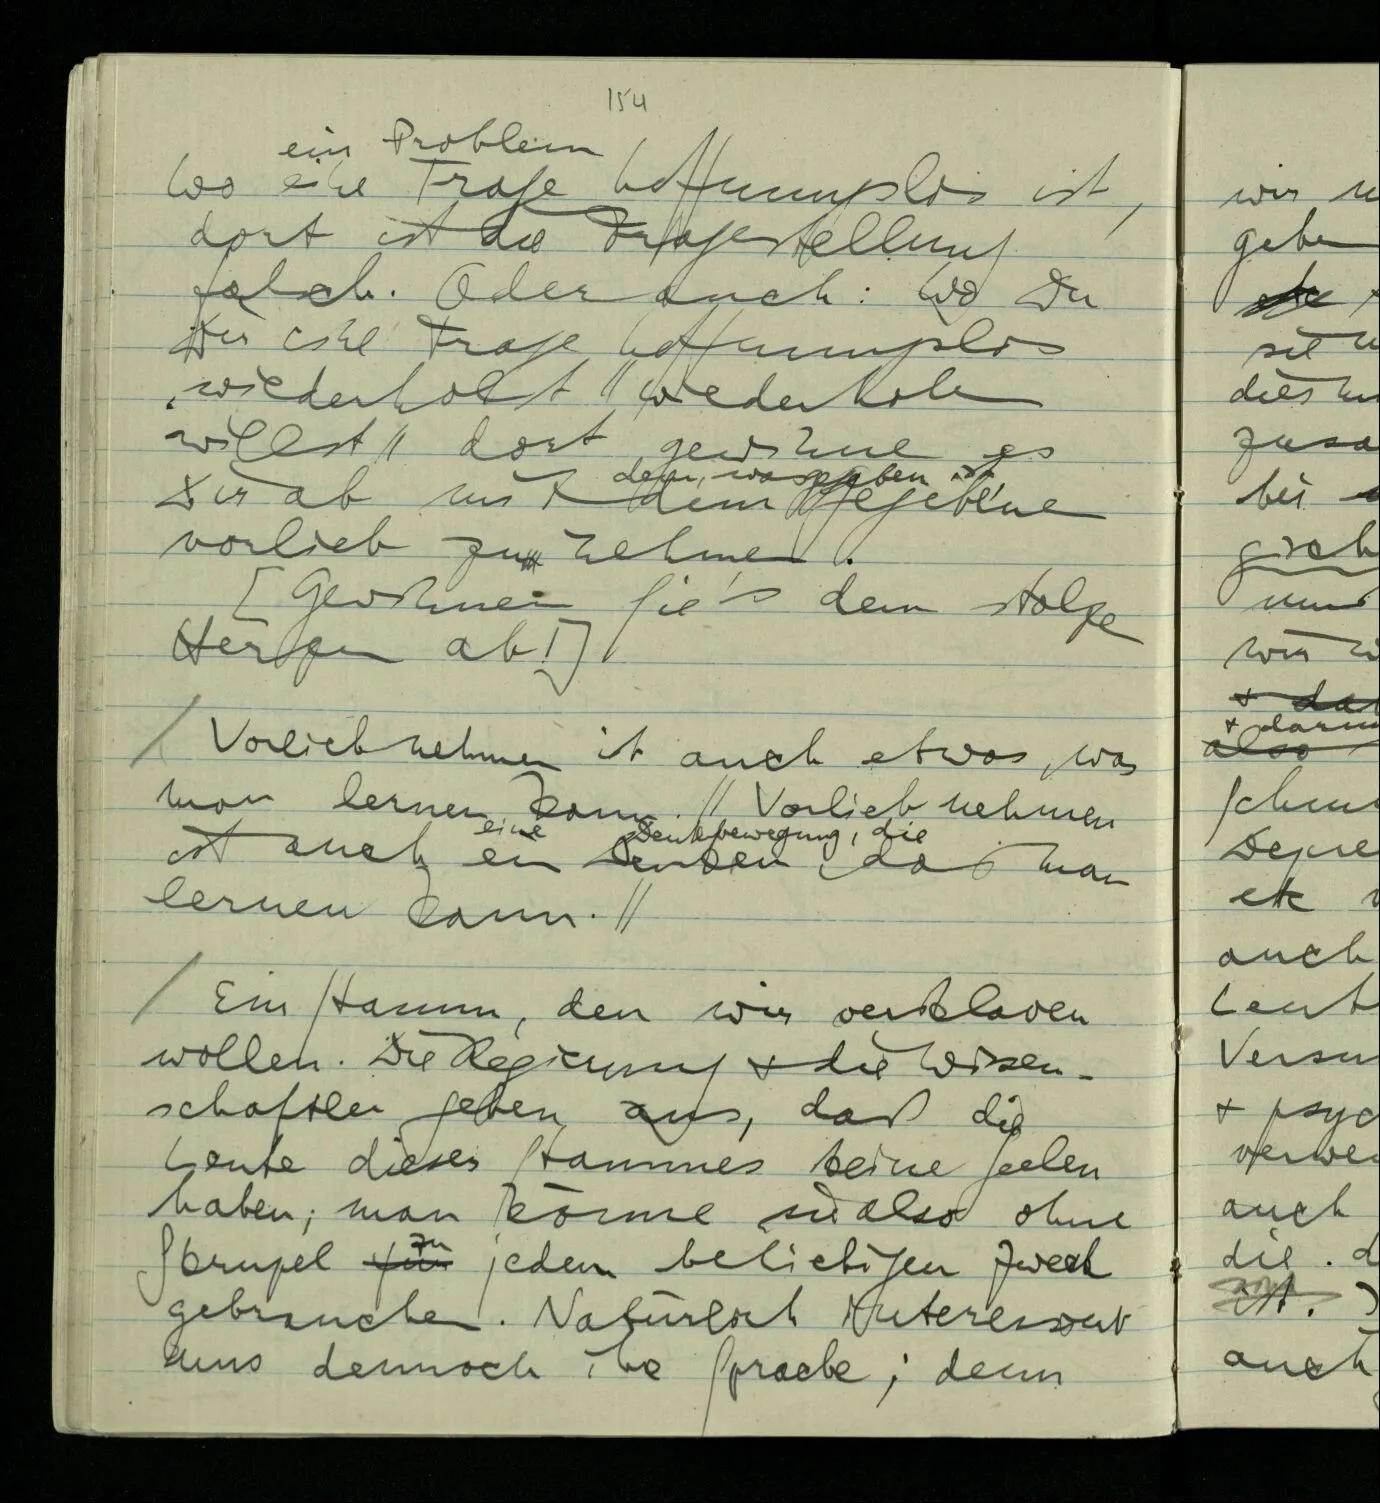 154
ein Problem
Wo eine Frage hoffnungslos ist,
dort ist die Fragestellung
falsch. Oder auch: Wo Du
Dir eine Frage hoffnungslos
wiederholst // wiederholen
willst // dort gewöhne es
dem, was gegeben ist
Dir ab mit dem Gegebene
vorlieb zu nehmen.
[Gewöhnen Sie's dem stolze
Herzen ab!]
/ Vorliebnehmen ist auch etwas, was
man lernen kann. // Vorliebnehmen
eine Denkbewegung, die
ist auch ein Denken, das man
lernen kann. //
/ Ein Stamm, den wir versklaven
wollen. Die Regierung + die Wissen-
schaftler geben aus, daß die
Leute dieses Stammes keine Seelen
haben; man könne sie also ohne
zu
Skrupel für jeden beliebigen Zweck
gebrauchen. Natürlich interessiert
uns dennoch ihre Sprache; denn
wir
gebe
sie
zusa
bei
und
wir
+ dar
+ darum
also
Depre
etc
auch
Leut
Versu
+ psyc
verwe
auch
die . d
ist.
auch